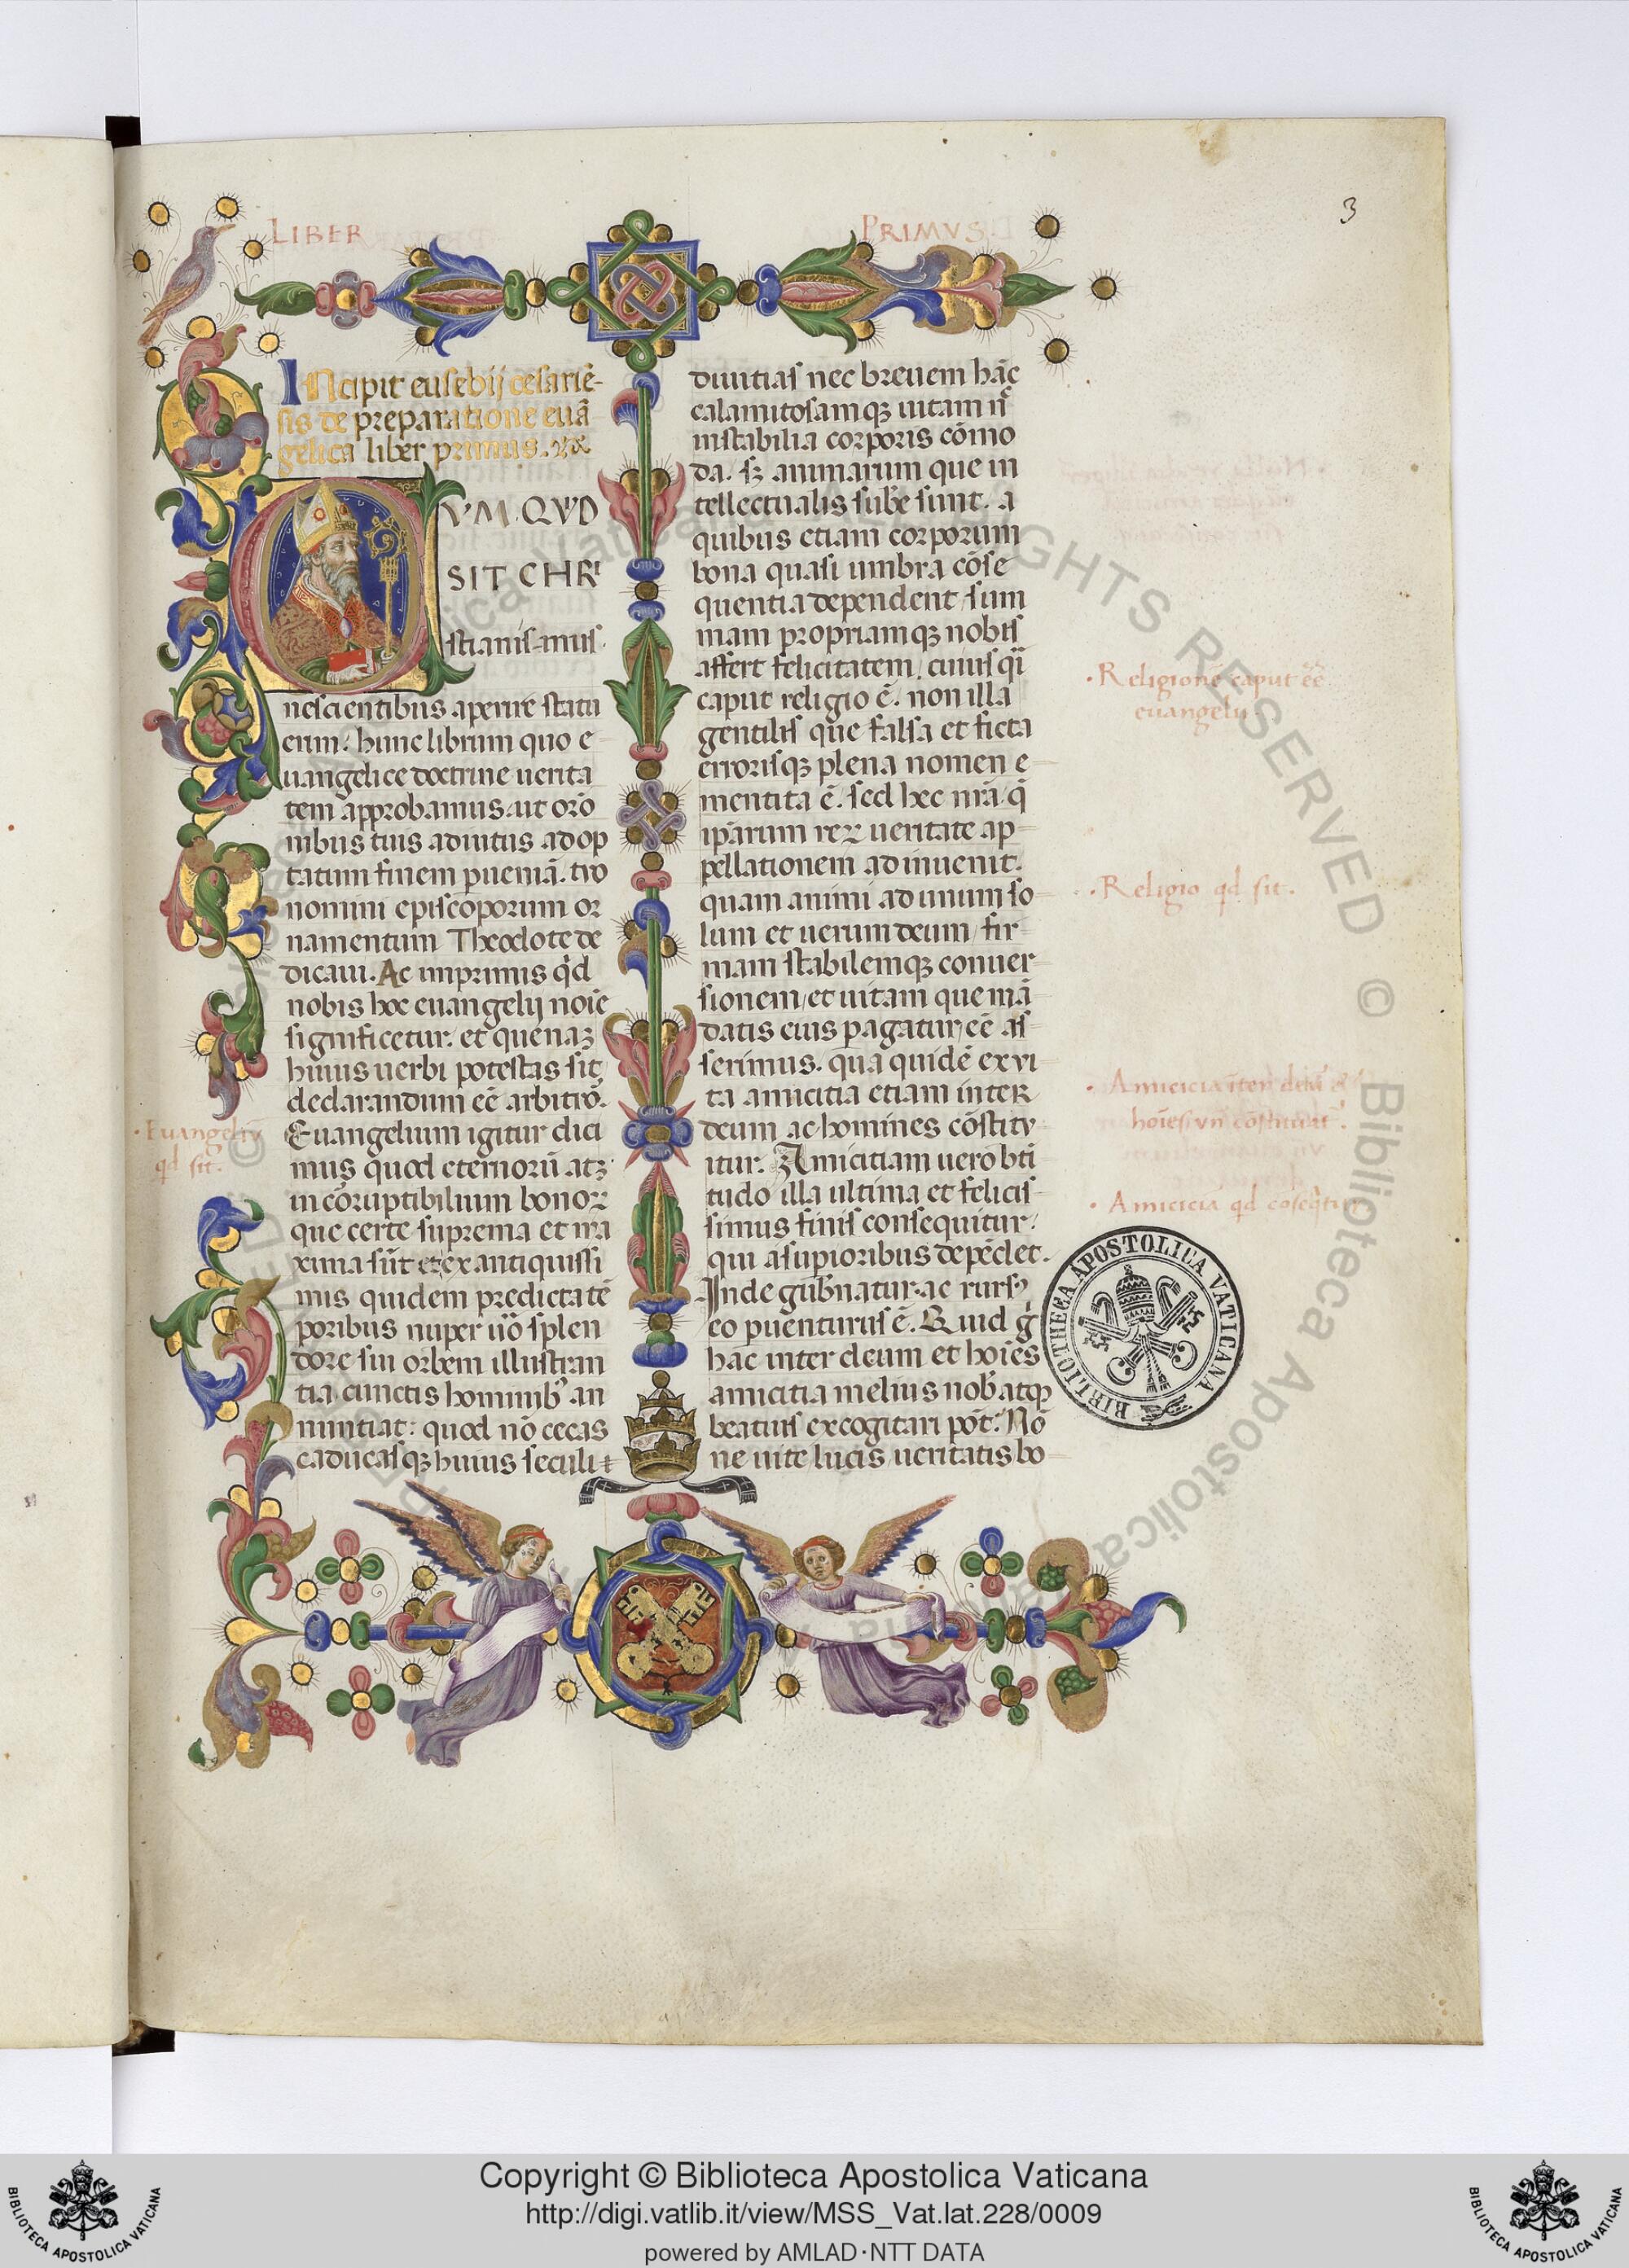 LIBER
PRIMVS
3
Incipit eusebij cesariē-
sis de preparatione euā
gelica liber primus.
CVM QVD
SIT CHRI
stianismus
nescientibus aperire statu
erim: hunc librum quo e
uangelice doctrine uerita
tem approbamus. ut orō
nibus tuis adiutus ad op
tatum finem pueniā. tvo
nomini episcoporum or
namentum Theodote de
dicaui. Ac imprimis qd
nobis hoc euangelij noīe
significetur. et quenaꝫ
huius uerbi potestas sit
declarandum eē arbitrō.
Euangelium igitur dici
mus quod eternorū atꝫ
incoruptibilium bonoꝝ
que certe suprema et ma
xima sūt et ex antiquissi
mis quidem predicta tē
poribus nuper uō splen
dore sui orbem illustran
tia cunctis hominibꝰ an
nuntiat: quod nō cecas
caducasqꝫ huius seculi
diuitias nec breuem hāc
calamitosamqꝫ uitam n
instabilia corporis cōmo
da. sꝫ animarum que in
tellectualis sube sunt. a
quibus etiam corporum
bona quasi umbra cōse
quentia dependent/sum
mam propriamqꝫ nobis
affert felicitatem/cuius qi
caput religio ē. non illa
gentilis que falsa et ficta
errorisqꝫ plena nomen e
mentita ē. sed hec nrā q̄
ipsarum reꝝ ueritate ap
pellationem adinuenit.
quam animi ad unum so
lum et uerum deum/fir
mam stabilemqꝫ conuer
sionem/et uitam que mā
datis eius pagatur/eē as
serimus. qua quidē ex vi
ta amicitia etiam inter
deum ac homines cōstitv
itur. Amicitiam uero bti
tudo illa ultima et felicis
simus finis consequitur.
qui a supioribus depēdet.
Inde gubnatur. ac rursꝰ
eo puenturus ē. Quid g
hac inter deum et hoīes
amicitia melius nob atqꝫ
beatius excogitari pōt. Nō
ne uite lucis ueritatis bo
Euangeliū
qd sit.
Religionē caput eē
euangelij.
Religio qd sit.
Amicicia īter deū
hoīes/vn cōstituat.
Amicicia qd
BIBLIOTHECA APOSTOLICA VATICANA
Biblioteca Apostolica Vaticana ALL RIGHTS RESERVED ©
Copyright © Biblioteca Apostolica Vaticana
http://digi.vatlib.it/view/MSS_Vat.lat.228/0009
powered by AMLAD·NTT DATA
BIBLIOTECA APOSTOLICA VATICANA
BIBLIOTECA APOSTOLICA VATICANA